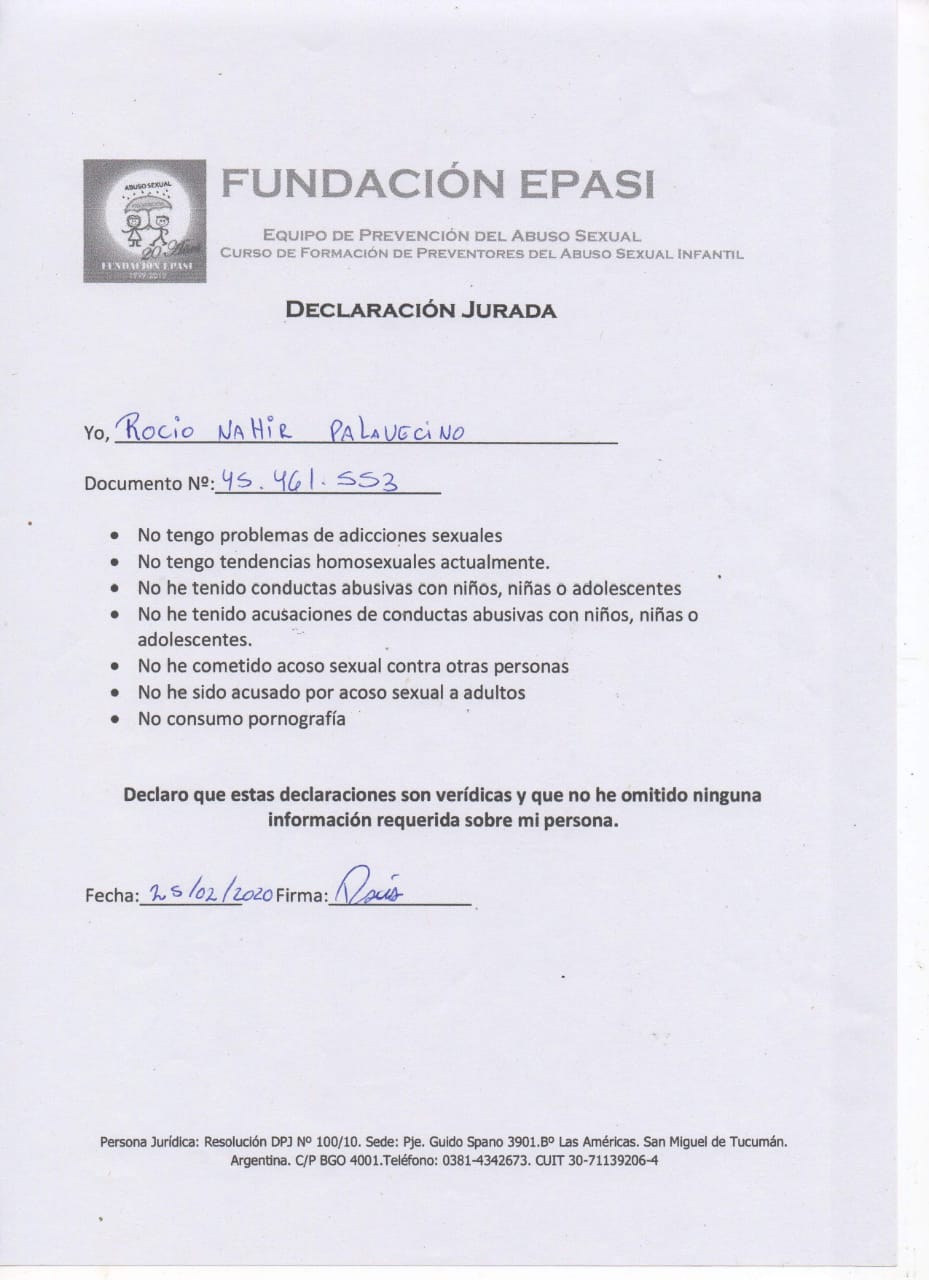 ABUSO SEXUAL
20 Años
FUNDACIÓN EPASI
1999-2019
FUNDACIÓN EPASI
EQUIPO DE PREVENCIÓN DEL ABUSO SEXUAL
CURSO DE FORMACIÓN DE PREVENTORES DEL ABUSO SEXUAL INFANTIL
DECLARACIÓN JURADA
Yo, ROCIO NAHIR PALAVECINO
Documento Nº: 45.461.553
• No tengo problemas de adicciones sexuales
• No tengo tendencias homosexuales actualmente.
• No he tenido conductas abusivas con niños, niñas o adolescentes
• No he tenido acusaciones de conductas abusivas con niños, niñas o
adolescentes.
• No he cometido acoso sexual contra otras personas
• No he sido acusado por acoso sexual a adultos
• No consumo pornografía
Declaro que estas declaraciones son verídicas y que no he omitido ninguna
información requerida sobre mi persona.
Fecha: 25/02/2020 Firma:
Persona Jurídica: Resolución DPJ Nº 100/10. Sede: Pje. Guido Spano 3901.Bº Las Américas. San Miguel de Tucumán.
Argentina. C/P BGO 4001.Teléfono: 0381-4342673. CUIT 30-71139206-4